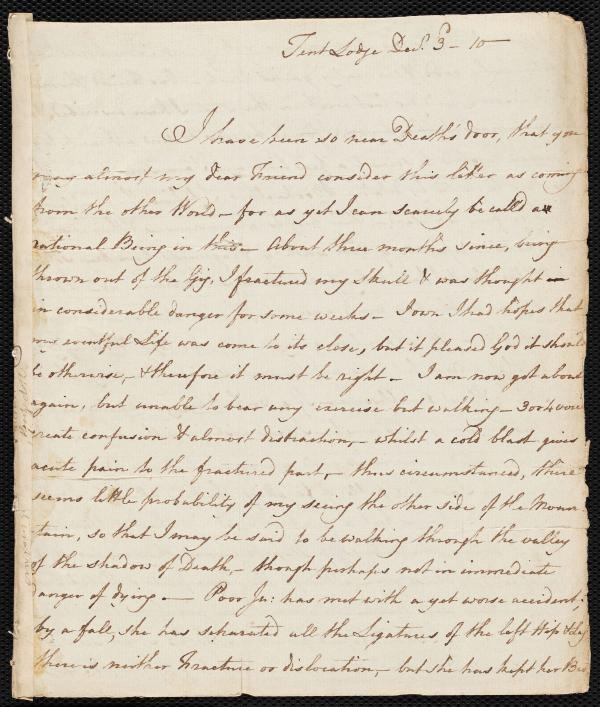 Tent Lodge Decr. 3d - 10
I have been so near Death's door, that you
may almost my dear Friend consider this letter as coming
from the other World - for as yet I can scarcely be called a
rational Being in this - About three months since, being
thrown out of the Gig, I fractured my Skull & was thought in
in considerable danger for some weeks - I own I had hopes that
my eventful Life was come to its close, but it pleased God it should
be otherwise, - & therefore it must be right - I am now got about
again, but unable to bear any exercise but walking - 3 or 4 voices
create confusion & almost distraction, - whilst a cold blast gives
acute pain to the fractured part, - thus circumstanced, there
seems little probability of my seeing the other side of the Moun
tain, so that I may be said to be walking through the valley
of the shadow of Death, - though perhaps not in immediate
danger of dying. - Poor Ju: has met with a yet worse accident;
by a fall, she has separated all the Ligatures of the left Hip
there is neither Fracture or dislocation, - but she has kept her Bed